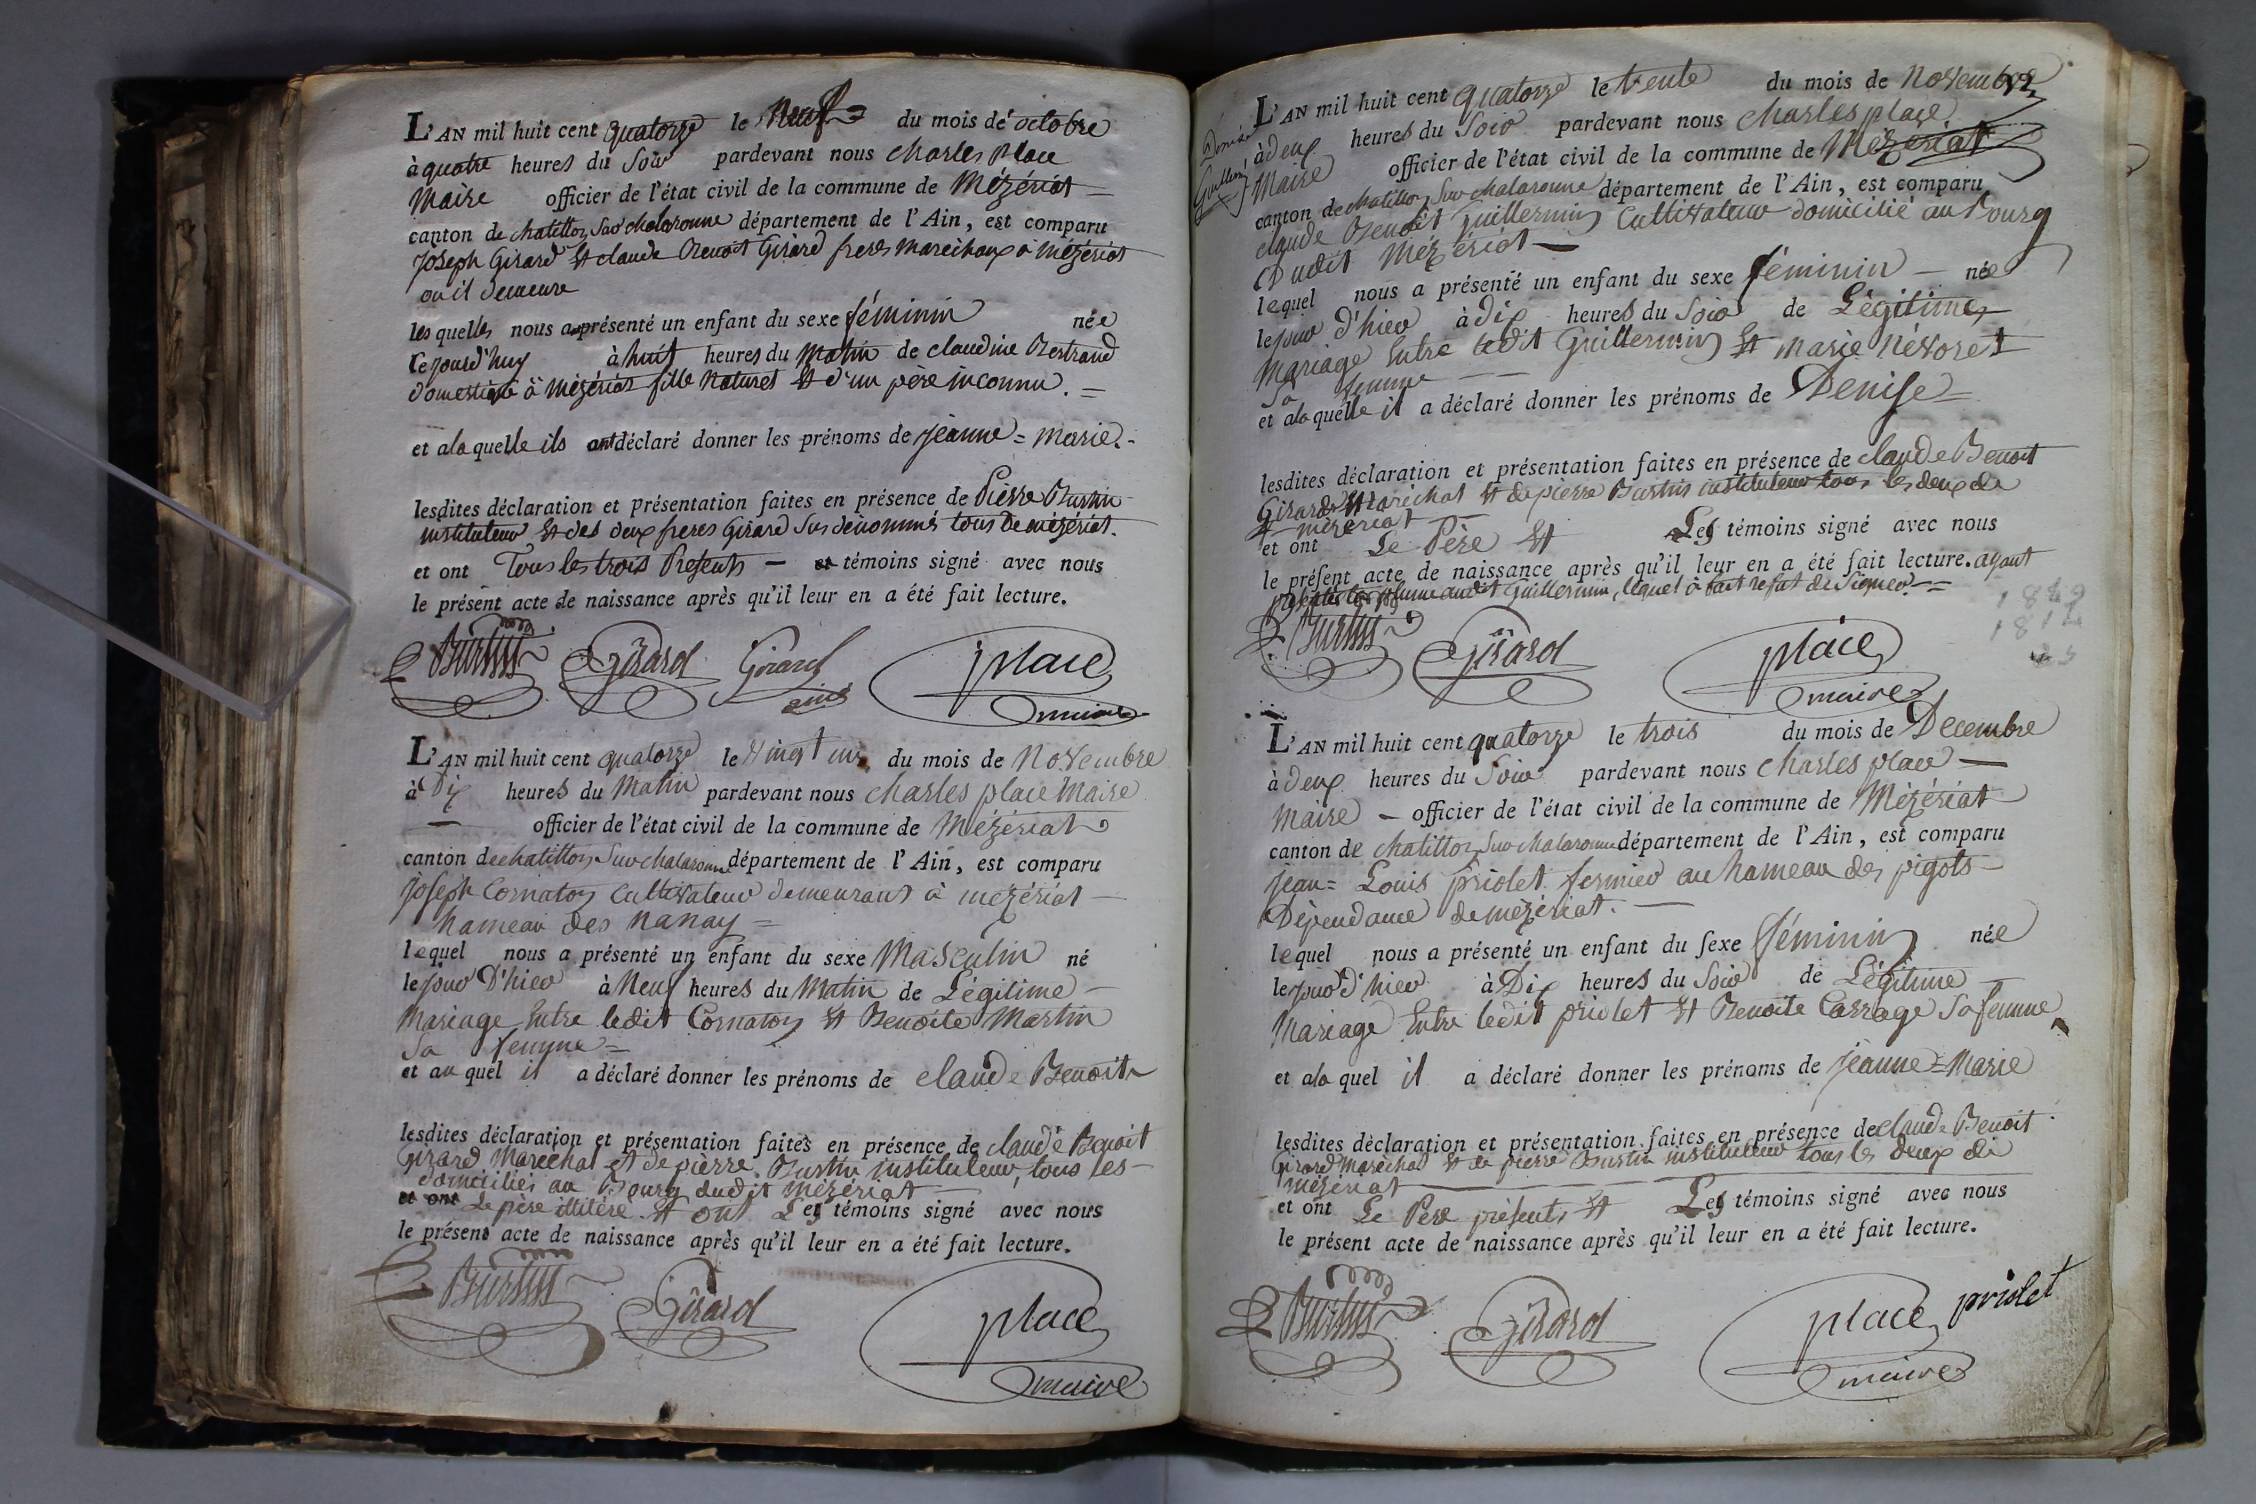 L'AN mil huit cent quatorze le Neuf du mois de octobre
à quatre heures du Soir pardevant nous charles Place
Maire officier de l'état civil de la commune de Mézériat
canton de chatillon Sur chalaronne département de l'Ain, est comparu
Joseph Girard et claude Benoit Girard freres marechaux à Mézériat
ou il demeure
les quelles nous présenté un enfant du sexe féminin née
ce jourd'huy à huit heures du Matin de claudine Bertrand
domestique à Mézériat fille Naturel et d'un père inconnu.
et a la quelle ils ont déclaré donner les prénoms de jeanne = Marie.
lesdites déclaration et présentation faites en présence de Pierre Burtin
instituteur et des deux freres Girard Sus dénommés tous de mézériat.
et ont Tous les trois Présents témoins signé avec nous
le présent acte de naissance après qu'il leur en a été fait lecture.
Burtin Girard Girard ainé place maire
L'AN mil huit cent quatorze le vingt un du mois de Novembre
à Dix heures du Matin pardevant nous charles place Maire
officier de l'état civil de la commune de Mézériat
canton de chatillon Sur chalaronne département de l'Ain, est comparu
joseph Cornaton Cultivateur demeurant à mézériat
hameau des nanay
lequel nous a présenté un enfant du sexe Masculin né
le jour D'hier à Neuf heures du Matin de Légitime
Mariage Entre ledit Cornaton et Benoite Martin
Sa femme
et au quel il a déclaré donner les prénoms de claude Benoit
lesdites déclaration et présentation faites en présence de claude Benoit
Girard Marechal et de pierre Burtin instituteur, tous les
domiciliés au Bourg dudit Mézériat
et ont Le père illitére et ont Les témoins signé avec nous
le présent acte de naissance après qu'il leur en a été fait lecture.
Burtin Girard place maire
L'AN mil huit cent quatorze le trente du mois de Novembre
à deux heures du Soir pardevant nous charles place
Maire officier de l'état civil de la commune de Mézériat
canton de chatillon Sur chalaronne département de l'Ain, est comparu
claude Benoit Guillermin Cultivateur domicilié au Bourg
Dudit Mézériat
lequel nous a présenté un enfant du sexe féminin née
le jour d'hier à dix heures du Soir de Légitime
Mariage Entre ledit Guillermin et Marie Névoret
Sa femme
et a la quelle il a déclaré donner les prénoms de Denise
lesdites déclaration et présentation faites en présence de claude Benoit
Girard Maréchal et de pierre Burtin instituteur tous les deux de
mézériat
et ont Le Père et Les témoins signé avec nous
le présent acte de naissance après qu'il leur en a été fait lecture. ayant
plume audit Guillermin, lequel à fait refut de Signer.
Burtin Girard place maire
L'AN mil huit cent quatorze le trois du mois de Decembre
à deux heures du Soir pardevant nous charles place
Maire officier de l'état civil de la commune de Mézériat
canton de chatillon Sur chalaronne département de l'Ain, est comparu
jean = Louis priolet fermier au hameau des pigots
Dépendance de mézériat.
lequel nous a présenté un enfant du sexe féminin née
le jour d'hier à Dix heures du Soir de Légitime
Mariage Entre ledit priolet et Benoite Carrage Sa femme
et a la quel il a déclaré donner les prénoms de jeanne = Marie
lesdites déclaration et présentation faites en présence de claude Benoit
Girard Maréchal et de pierre Burtin instituteur tous les deux de
mézériat
et ont Le Père présents et Les témoins signé avec nous
le présent acte de naissance après qu'il leur en a été fait lecture.
Burtin Girard place maire priolet